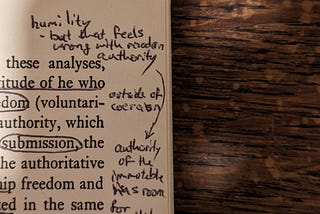 humility
- but that feels
wrong with random
authority
these analyses,
titude of he who
dom (voluntari-
authority, which
submission, the
he authoritative
ip freedom and
ed in the same
outside of
coercion
authority
of the
immutable
has room
for